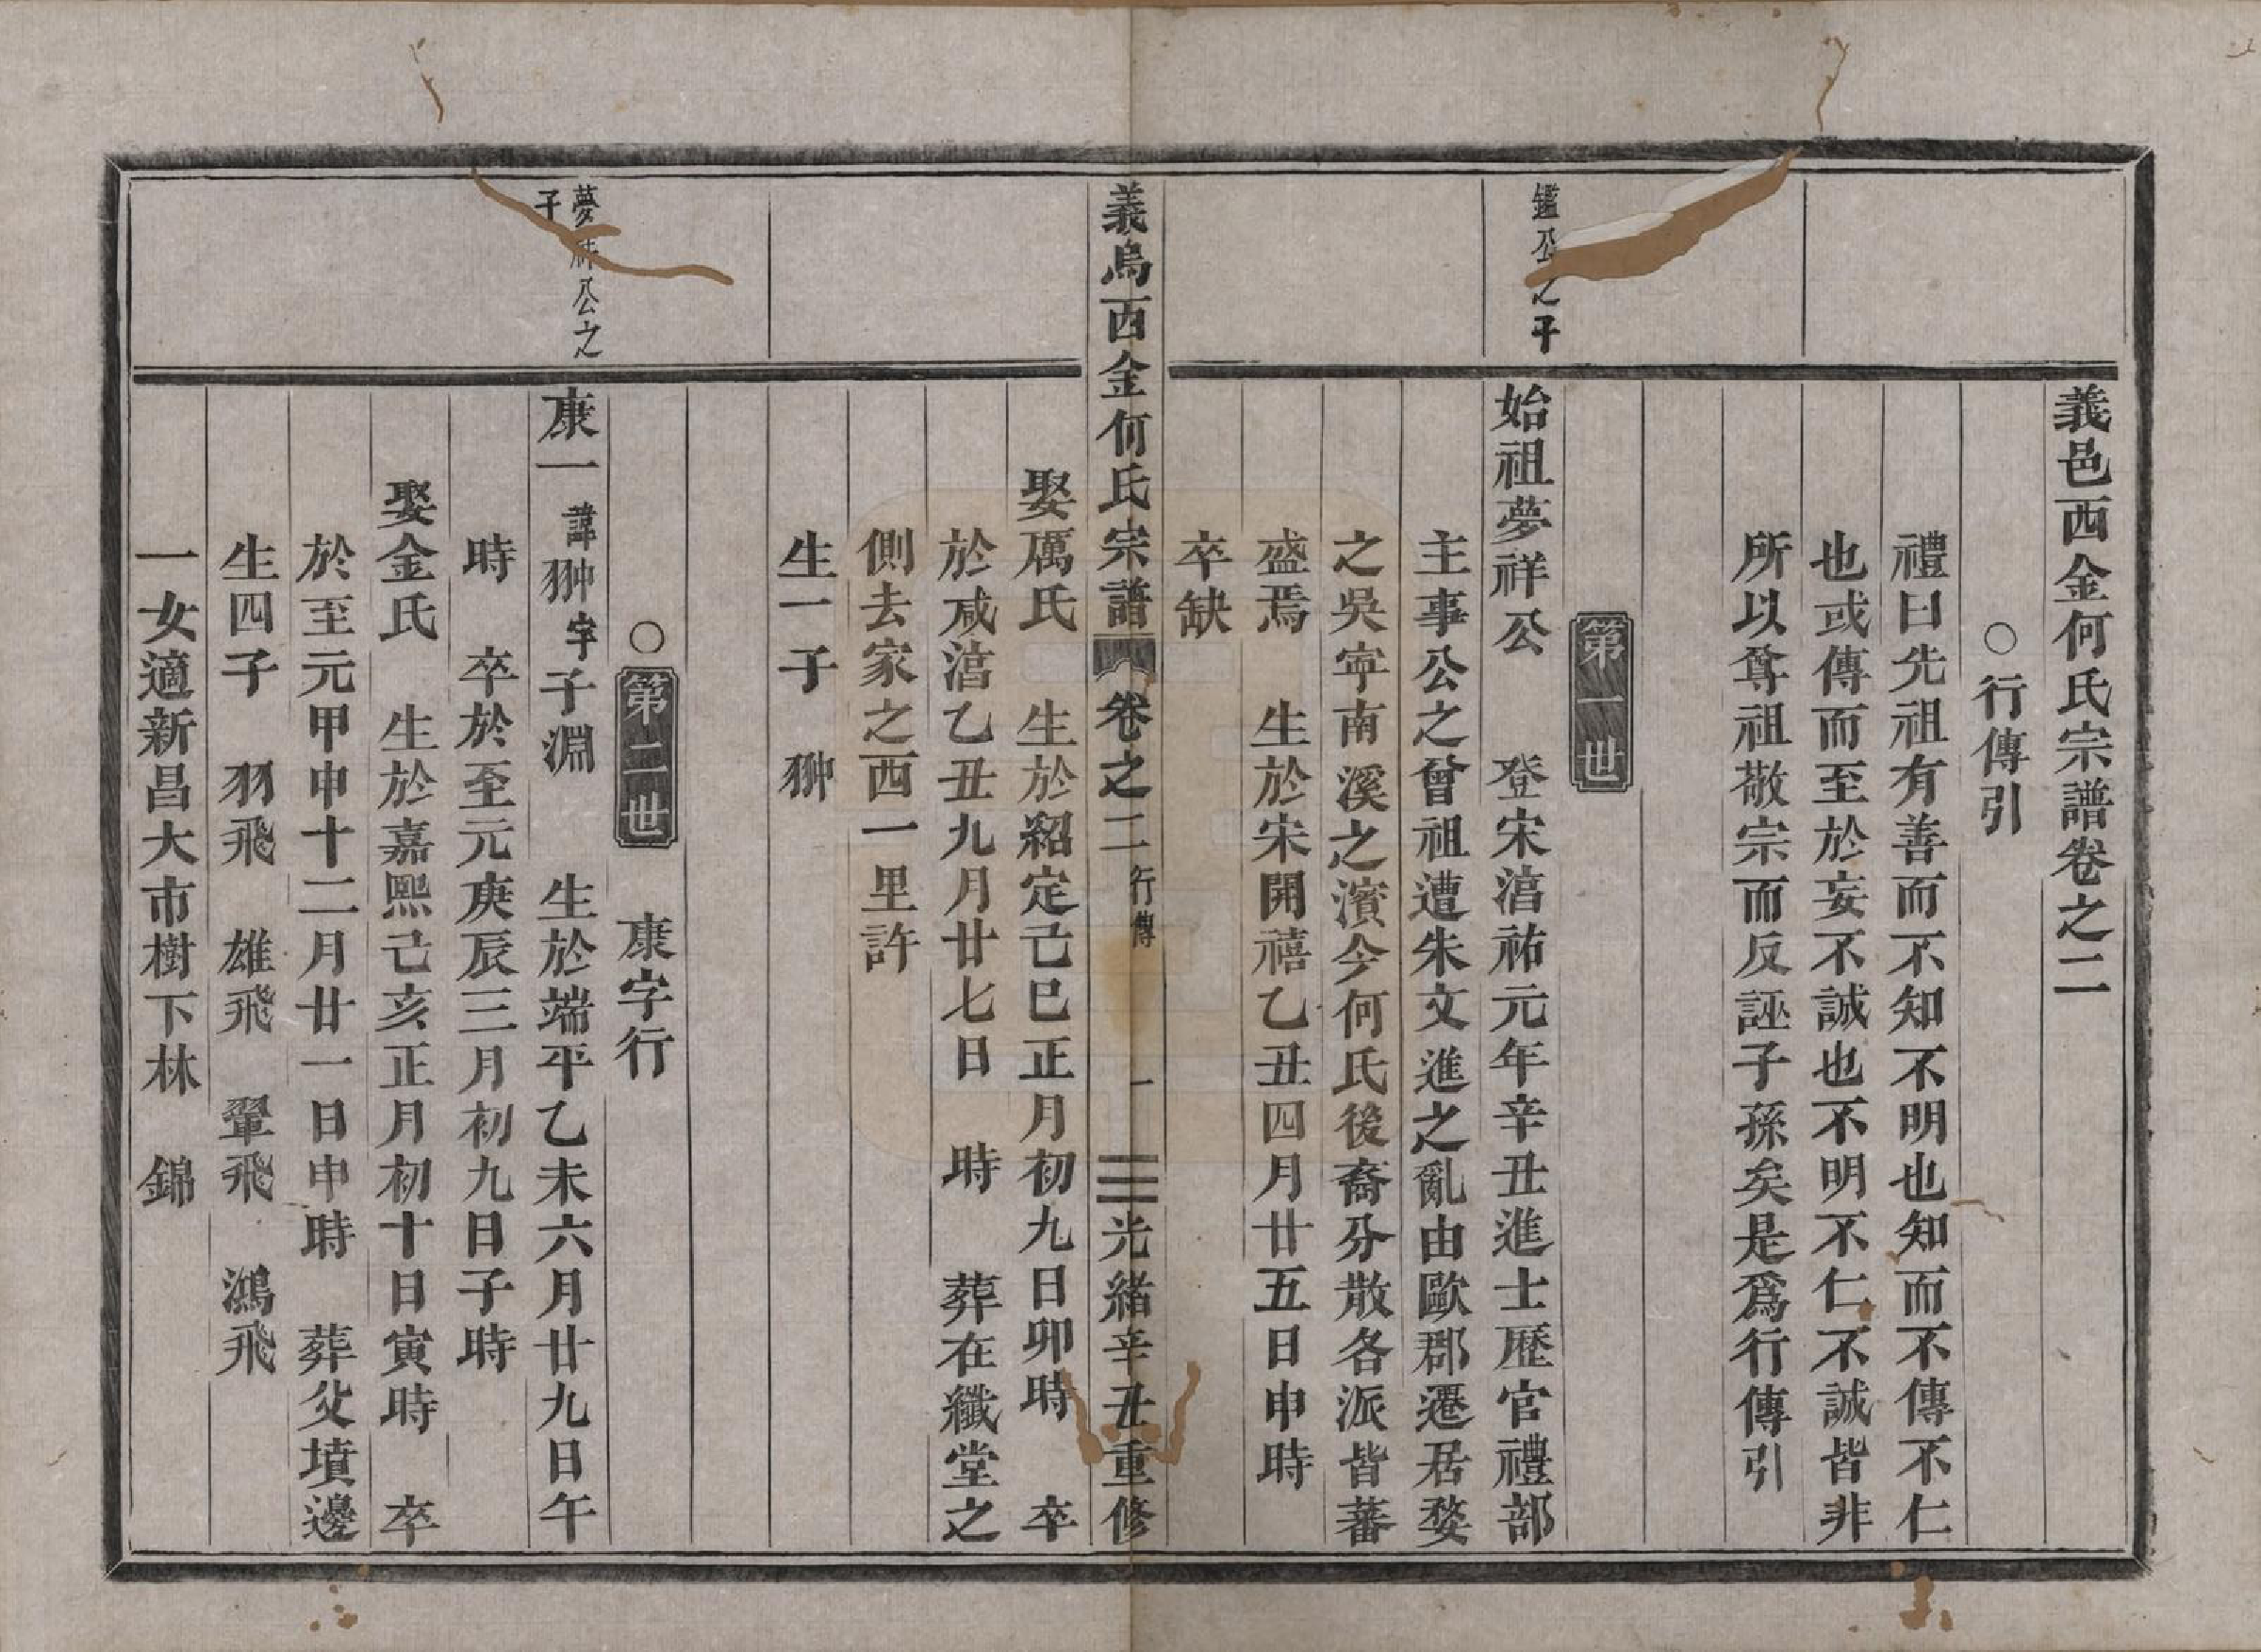 義邑西金何氏宗譜卷之二
○行傳引
禮曰先祖有善而不知不明也知而不傳不仁
也或傳而至於妄不誠也不明不仁不誠皆非
所以尊祖敬宗而反誣子孫矣是爲行傳引
第一世
鑑公之子
始祖夢祥公 登宋湻祐元年辛丑進士歷官禮部
主事公之曾祖遭朱文進之亂由歐郡遷居婺
之吳寜南溪之濱今何氏後裔分散各派皆蕃
盛焉 生於宋開禧乙丑四月廿五日申時
卒缺
義烏西金何氏宗譜 卷之二 行傳 一 光緒辛丑重修
娶厲氏 生於紹定己巳正月初九日卯時 卒
於咸湻乙丑九月廿七日 時 葬在纖堂之
側去家之西一里許
生一子 翀
○第二世 康字行
夢祥公之
子
康一 諱翀字子淵 生於端平乙未六月廿九日午
時 卒於至元庚辰三月初九日子時
娶金氏 生於嘉熙己亥正月初十日寅時 卒
於至元甲申十二月廿一日申時 葬父墳邊
生四子 羽飛 雄飛 翬飛 鴻飛
一女適新昌大市樹下林 錦